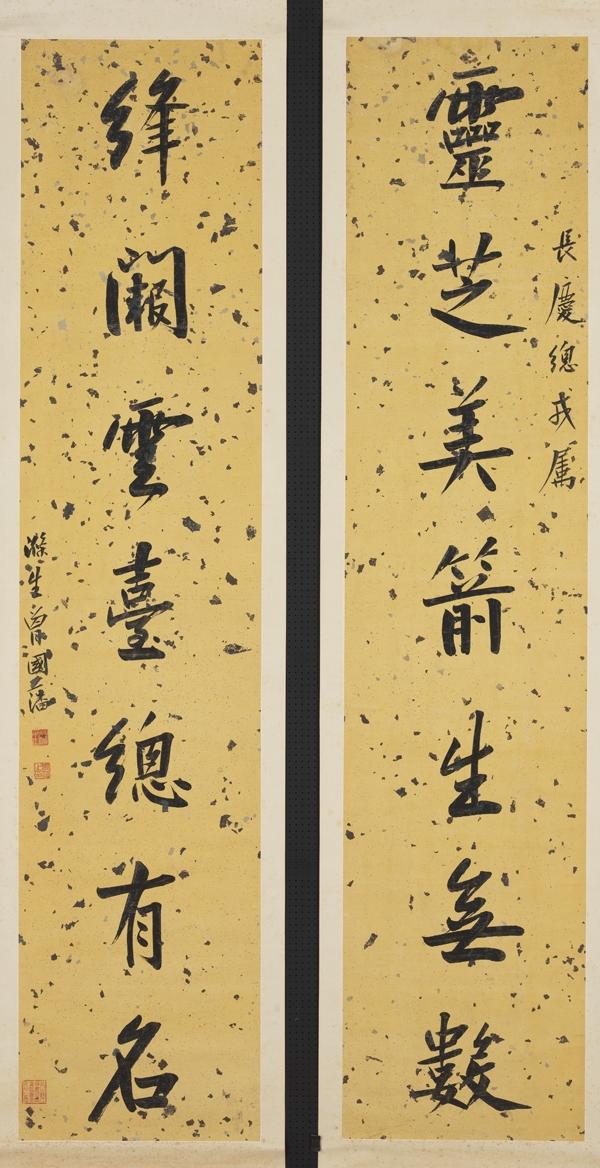 長慶總戎属
靈芝美箭生無數
絳闕雲臺總有名
滌生曾國藩